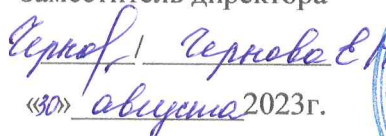 Заместитель директора
Чернов / Чернова Е
«30» августа 2023г.